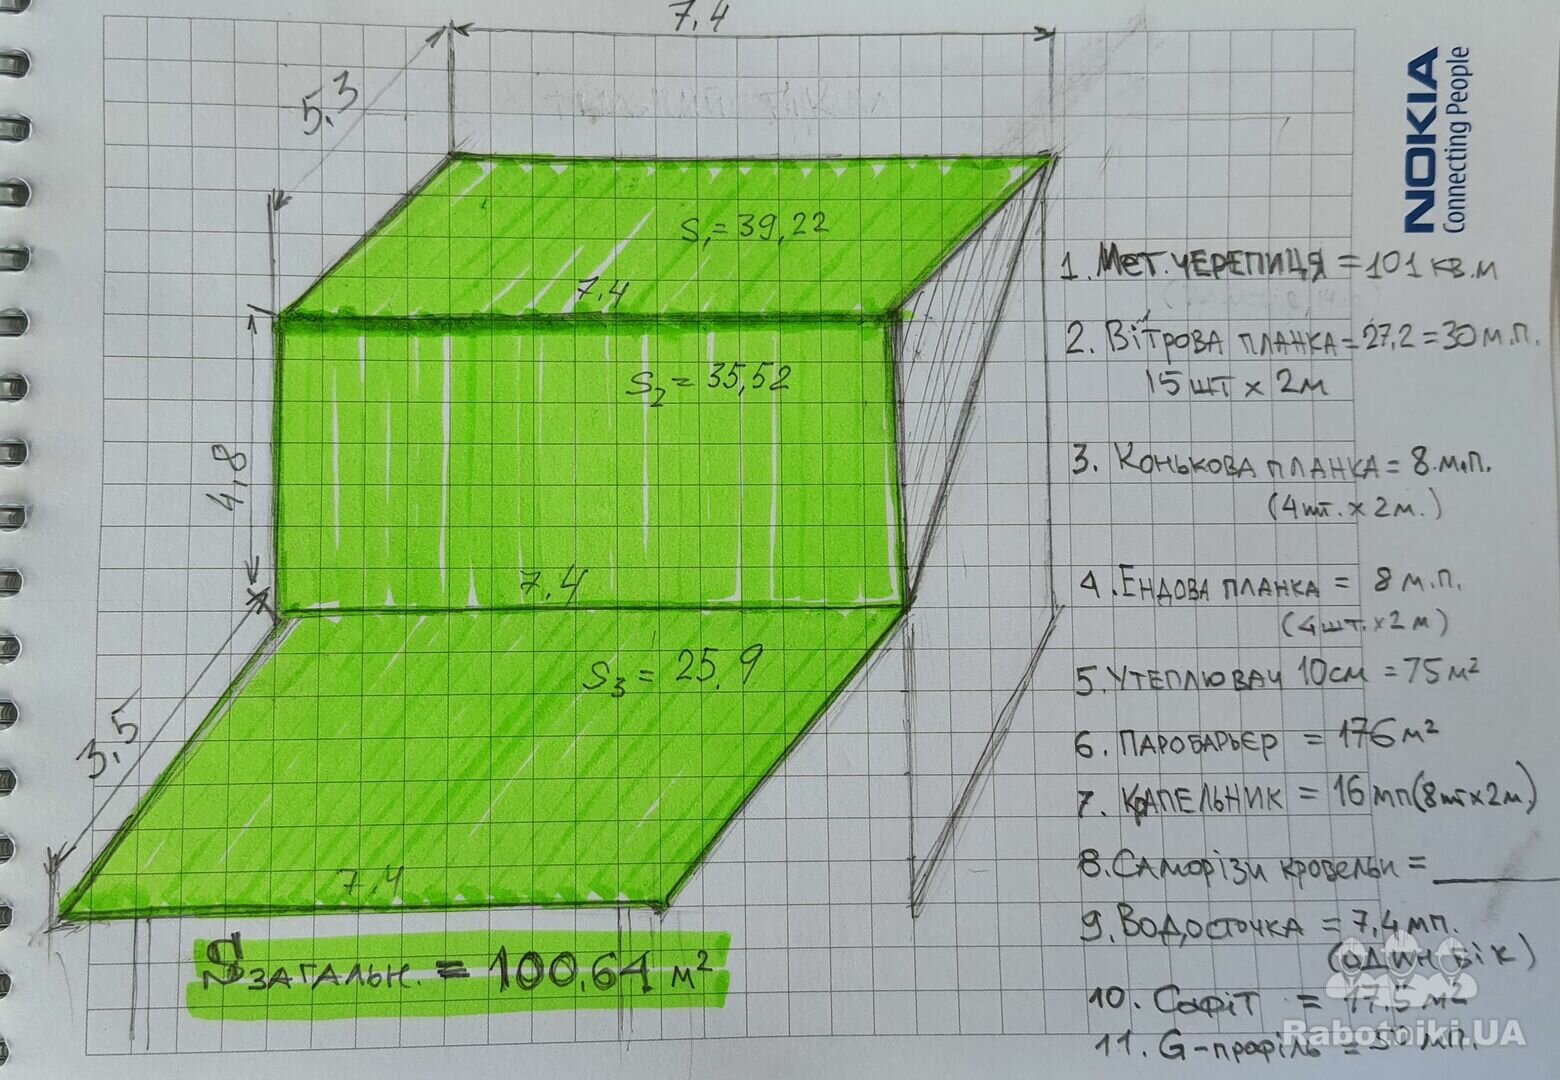 7,4
5,3
S₁=39,22
7,4
4,8
S₂=35,52
7,4
3,5
S₃=25,9
7,4
S ЗАГАЛЬН. = 100,64 м²
NOKIA
Connecting People
1. Мет. ЧЕРЕПИЦЯ = 101 КВ.М
2. ВіТРОВА ПЛАНКА = 27,2 = 30 М.П.
15 шт х 2м
3. Конькова планка = 8 м.п.
(4 шт. х 2м.)
4. Ендова планка = 8 м.п.
(4 шт. х 2м)
5. Утеплювач 10см = 75м²
6. Паробарьєр = 176 м²
7. Капельник = 16 мп (8шт х 2м)
8. Саморізи кровельн =
9. Водосточка = 7,4 мп.
(один бік)
10. Софіт = 17,5 м²
11. G-профіль = 50 мп.
Rabotniki.UA